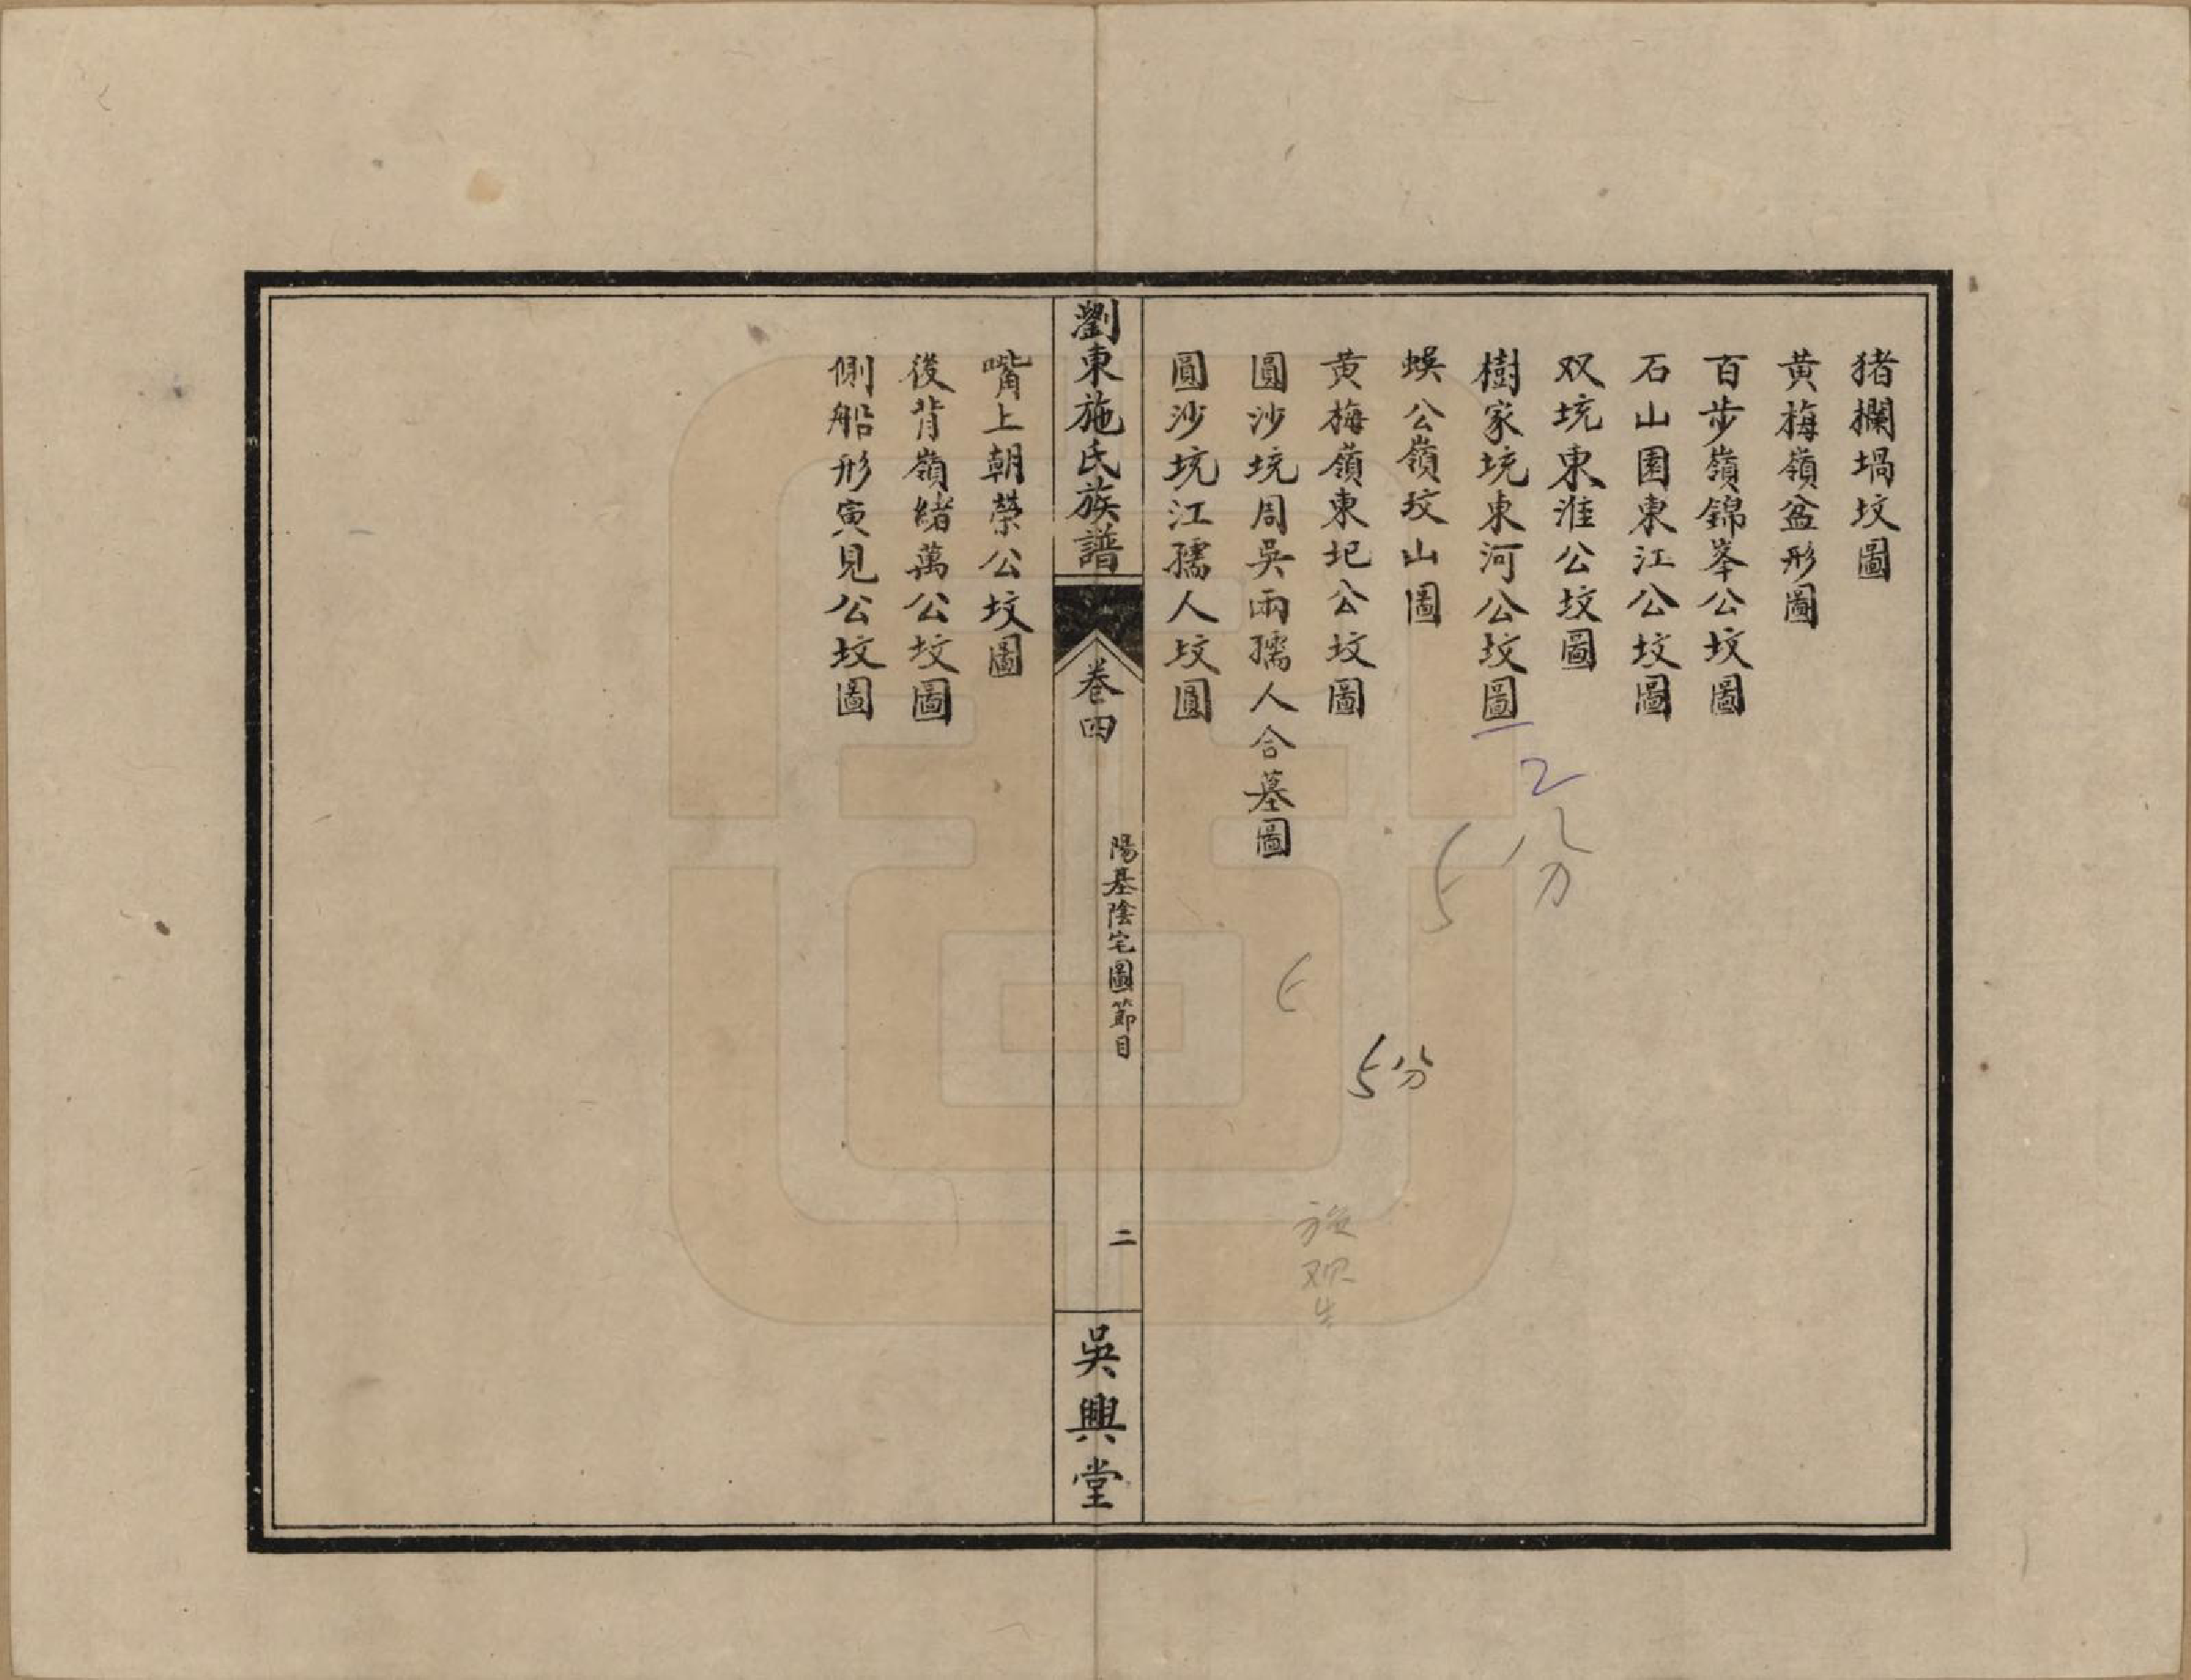 猪攔堝坟圖
黄梅嶺盆形圖
百步嶺錦峯公坟圖
石山園東江公坟圖
双坑東淮公坟圖
樹家坑東河公坟圖
蜈公嶺坟山圖
黄梅嶺東圯公坟圖
圓沙坑周吳兩孺人合墓圖
圓沙坑江孺人坟圓
瀏東施氏族譜
卷四
陽基陰宅圖節目
二
吳興堂
嘴上朝榮公坟圖
後背嶺緒萬公坟圖
側船形寅見公坟圖
2
5分
5分
施观生